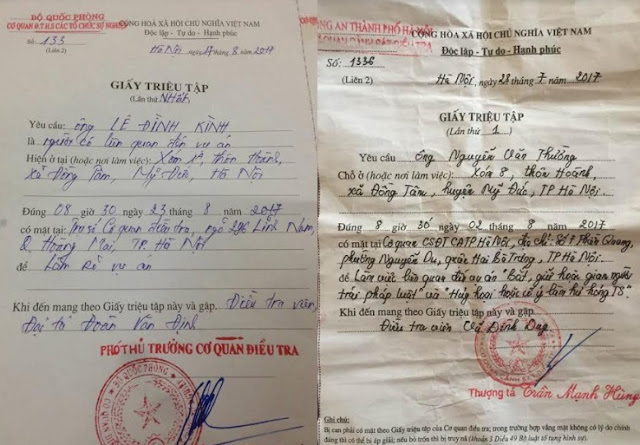 BỘ QUỐC PHÒNG
CƠ QUAN Đ.T.H.S CÁC TỔ CHỨC SỰ NGHIỆP
Số: 133
(Liên 2)
CỘNG HÒA XÃ HỘI CHỦ NGHĨA VIỆT NAM
Độc lập - Tự do - Hạnh phúc
Hà Nội ngày 17 tháng 8 năm 2017
GIẤY TRIỆU TẬP
(Lần thứ Nhất)
Yêu cầu: ông LÊ ĐÌNH KÌNH
là người có liên quan đến vụ án
Hiện ở tại (hoặc nơi làm việc): Xóm thôn Hoành,
xã Đồng Tâm, Mỹ Đức, Hà Nội
Đúng 08 giờ 30 ngày 23 tháng 8 năm 2017
có mặt tại: Trụ sở Cơ quan điều tra, ngõ 296 Lĩnh Nam,
Q. Hoàng Mai, TP. Hà Nội
để Làm rõ vụ án
Khi đến mang theo Giấy triệu tập này và gặp Điều tra viên,
Đại tá Đoàn Văn Định
PHÓ THỦ TRƯỞNG CƠ QUAN ĐIỀU TRA
BỘ QUỐC PHÒNG
CÔNG AN THÀNH PHỐ HÀ NỘI
CƠ QUAN CẢNH SÁT ĐIỀU TRA
Số: 1336
(Liên 2)
CỘNG HÒA XÃ HỘI CHỦ NGHĨA VIỆT NAM
Độc lập - Tự do - Hạnh phúc
Hà Nội, ngày 28 tháng 7 năm 2017
GIẤY TRIỆU TẬP
(Lần thứ 1)
Yêu cầu ông Nguyễn Văn Thưởng
Chỗ ở (hoặc nơi làm việc): Xóm 8, thôn Hoành,
xã Đồng Tâm, huyện Mỹ Đức, TP Hà Nội.
Đúng 8 giờ 30 ngày 02 tháng 8 năm 2017
có mặt tại Cơ quan CSĐT CATP Hà Nội, địa chỉ: Số 7 Thiền Quang,
phường Nguyễn Du, quận Hai Bà Trưng, TP Hà Nội.
để Làm việc liên quan đến vụ án "Bắt, giữ hoặc giam người
trái pháp luật" và "Hủy hoại hoặc cố ý làm hư hỏng TS".
Khi đến mang theo Giấy triệu tập này và gặp
Điều tra viên Đình Duy
Thượng tá Trần Mạnh Hùng
Ghi chú:
Bị can phải có mặt theo Giấy triệu tập của Cơ quan điều tra; trong trường hợp vắng mặt không có lý do chính
đáng thì có thể bị áp giải; nếu bỏ trốn thì bị truy nã (khoản 3 Điều 49 Bộ luật Tố tụng hình sự).